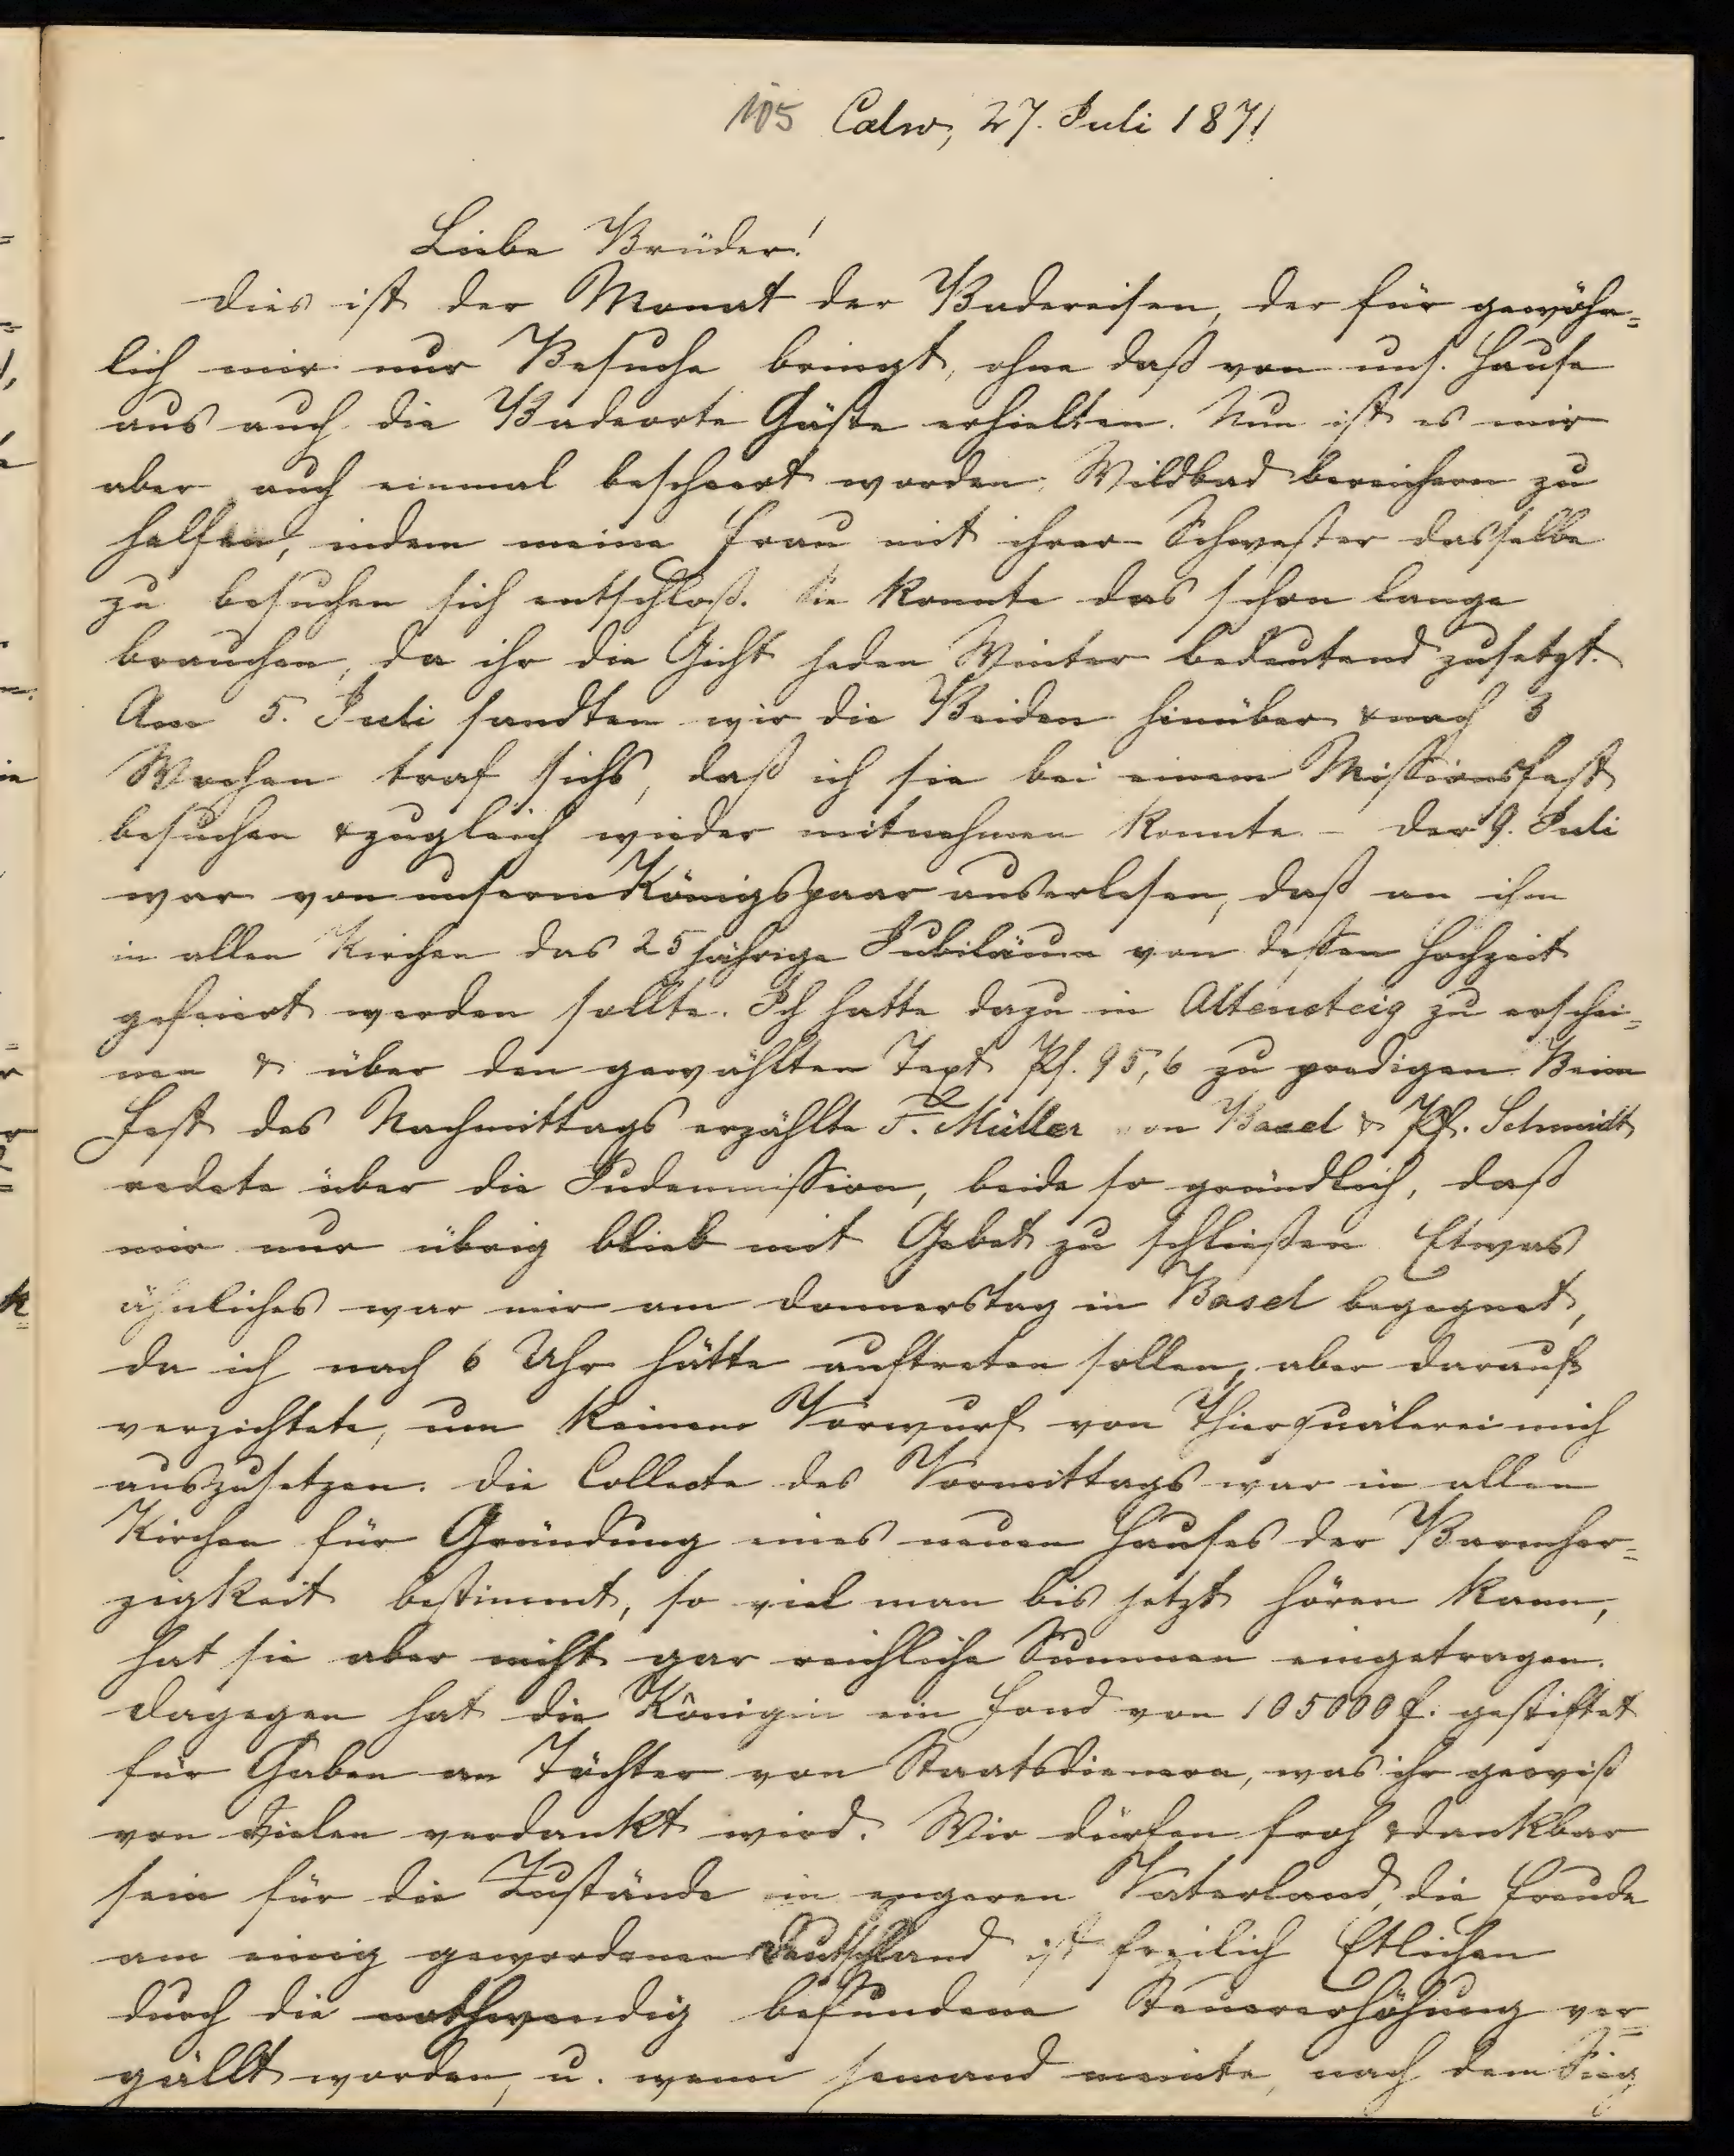 105 Calw, 27. Juli 1871
Liebe Brüder!
Dies ist der Monat der Badereisen, der für gewöhn=
lich mir nur Besuche bringt, ohne daß von uns. Hause
aus auch die Badeorte Gäste erhielten. Nun ist es mir
aber auch einmal bescheert worden, Wildbad bereichern zu
helfen, indem meine Frau mit ihrer Schwester dasselbe
zu besuchen sich entschloß. Sie konnte das schon lange
brauchen, da ihr die Gicht jeden Winter bedeutend zusetzt.
Am 5. Juli sandten wir die Beiden hinüber & nach 3
Wochen traf sichs, daß ich sie bei einem Missionsfest
besuchen & zugleich wieder mitnehmen konnte. – Der 9. Juli
war von unserm Königspaar auserlesen, daß an ihm
in allen Kirchen das 25jährige Jubiläum von dessen Hochzeit
gefeiert werden sollte. Ich hatte dazu in Altensteig zu erschei=
nen & über den gewählten Text Ps. 95,6 zu predigen. Beim
Fest des Nachmittags erzählte F. Müller von Basel & Pf. Schmidt
redete über die Judenmission, beide so gründlich, daß
mir nur übrig blieb mit Gebet zu schließen. Etwas
ähnliches war mir am Donnerstag in Basel begegnet,
da ich nach 6 Uhr hätte auftreten sollen, aber darauf
verzichtete, um keinem Vorwurf von Thierquälerei mich
auszusetzen. Die Collecte des Vormittags war in allen
Kirchen für Gründung eines neuen Hauses der Barmher=
zigkeit bestimmt, so viel man bis jetzt hören kann,
hat sie aber nicht gar reichliche Summen eingetragen.
Dagegen hat die Königin ein Fond von 105000 f. gestiftet
für Gaben an Töchter von Staatsdienern, was ihr gewiß
von Vielen verdankt wird. Wir dürfen froh & dankbar
sein für die Zustände im engeren Vaterland, die Freude
am einig gewordenen Deutschland ist freilich Etlichen
durch die nothwendig befundene Steuererhöhung ver=
gällt worden, u. wenn jemand meinte, nach dem Sieg